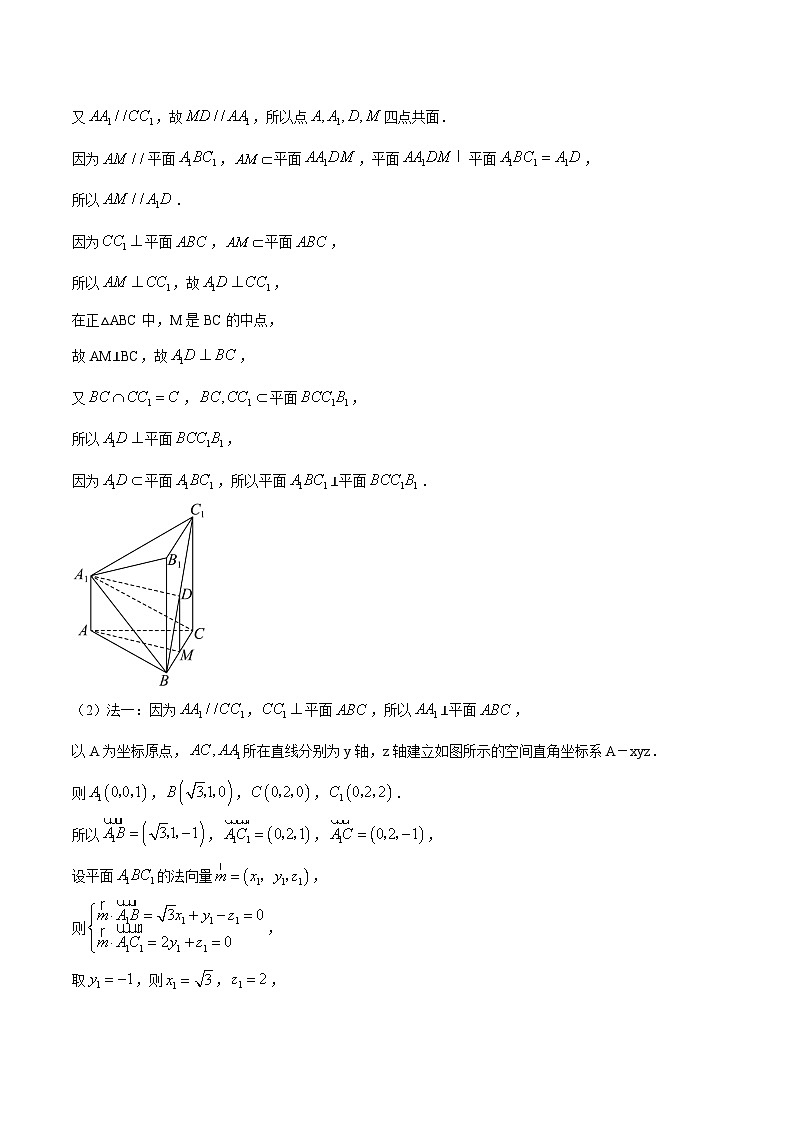 又 AA₁ / /CC₁，故 MD / / AA₁，所以点 A, A₁, D, M 四点共面.
因为 AM / / 平面 A₁BC₁，AM ⊂ 平面 AA₁DM，平面 AA₁DM | 平面 A₁BC₁ = A₁D，
所以 AM / / A₁D.
因为 CC₁ ⊥ 平面 ABC，AM ⊂ 平面 ABC，
所以 AM ⊥ CC₁，故 A₁D ⊥ CC₁，
在正△ABC 中，M 是 BC 的中点，
故 AM⊥BC，故 A₁D ⊥ BC，
又 BC ∩ CC₁ = C，BC, CC₁ ⊂ 平面 BCC₁B₁，
所以 A₁D ⊥ 平面 BCC₁B₁，
因为 A₁D ⊂ 平面 A₁BC₁，所以平面 A₁BC₁⊥平面 BCC₁B₁.
C₁
B₁
A₁
D
A
C
M
B
（2）法一：因为 AA₁ / /CC₁，CC₁ ⊥ 平面 ABC，所以 AA₁⊥平面 ABC，
以 A 为坐标原点，AC, AA₁ 所在直线分别为 y 轴，z 轴建立如图所示的空间直角坐标系 A－xyz.
则 A₁(0,0,1)，B(√3,1,0)，C(0,2,0)，C₁(0,2,2).
所以 A₁B = (√3,1,−1)，A₁C₁ = (0,2,1)，A₁C = (0,2,−1)，
设平面 A₁BC₁ 的法向量 m = (x₁，y₁,z₁)，
则 { m · A₁B = √3x₁ + y₁ − z₁ = 0
m · A₁C₁ = 2y₁ + z₁ = 0，
取 y₁ = −1，则 x₁ = √3，z₁ = 2，